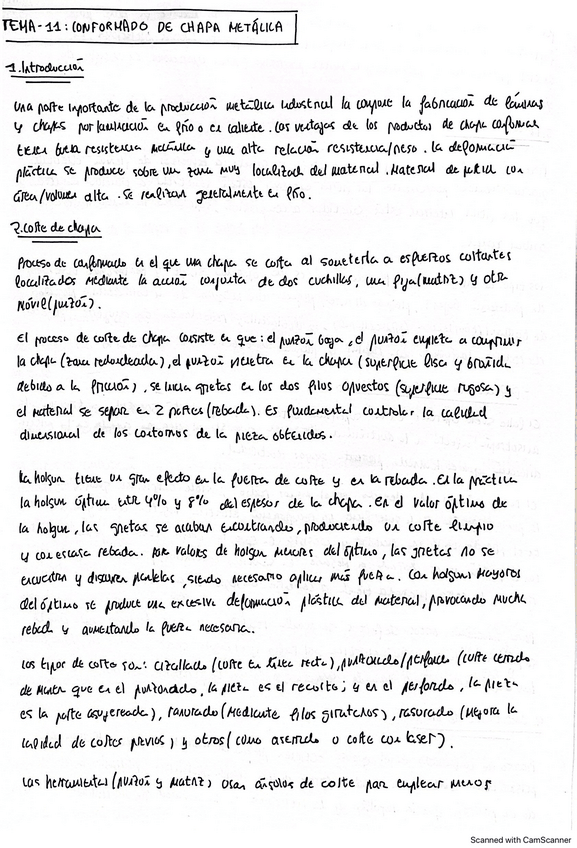 TEMA-11: CONFORMADO DE CHAPA METÁLICA
1. Introducción
Una parte importante de la producción metálica industrial la compone la fabricación de láminas
y chapas por laminación en frío o en caliente. Las ventajas de los productos de chapa conformar
tienen buena resistencia mecánica y una alta relación resistencia/peso. La deformación
plástica se produce sobre un zona muy localizada del material. Material de partida con
área/volumen alta. Se realizan generalmente en frío.
2. Corte de chapa
Proceso de conformado en el que una chapa se corta al someterla a esfuerzos cortantes
localizados mediante la acción conjunta de dos cuchillas, una fija (matriz) y otra
móvil (punzón).
El proceso de corte de chapa consiste en que: el punzón baja, el punzón empieza a comprimir
la chapa (zona redondeada), el punzón penetra en la chapa (superficie lisa y bruñida
debido a la fricción), se inicia grietas en los dos filos opuestos (superficie rugosa) y
el material se separa en 2 partes (rebaba). Es fundamental controlar la calidad
dimensional de los contornos de la pieza obtenidos.
La holgura tiene un gran efecto en la fuerza de corte y en la rebaba. En la práctica
la holgura óptima entre 4% y 8% del espesor de la chapa. En el valor óptimo de
la holgura, las grietas se acaban encontrando, produciendo un corte limpio
y con escasa rebaba. Por valores de holgura menores del óptimo, las grietas no se
encuentran y discurren paralelas, siendo necesario aplicar más fuerza. Con holguras mayores
del óptimo se produce una excesiva deformación plástica del material, provocando mucha
rebaba y aumentando la fuerza necesaria.
Los tipos de corte son: cizallado (corte en línea recta), punzonado/perforado (corte cerrado
de manera que en el punzonado, la pieza es el recorte; y en el perforado, la pieza
es la parte agujereada), ranurado (mediante filos giratorios), rasurado (mejora la
calidad de cortes previos) y otros (como aserrado o corte con laser).
Las herramientas (punzón y matriz) usan ángulos de corte para emplear menos
Scanned with CamScanner